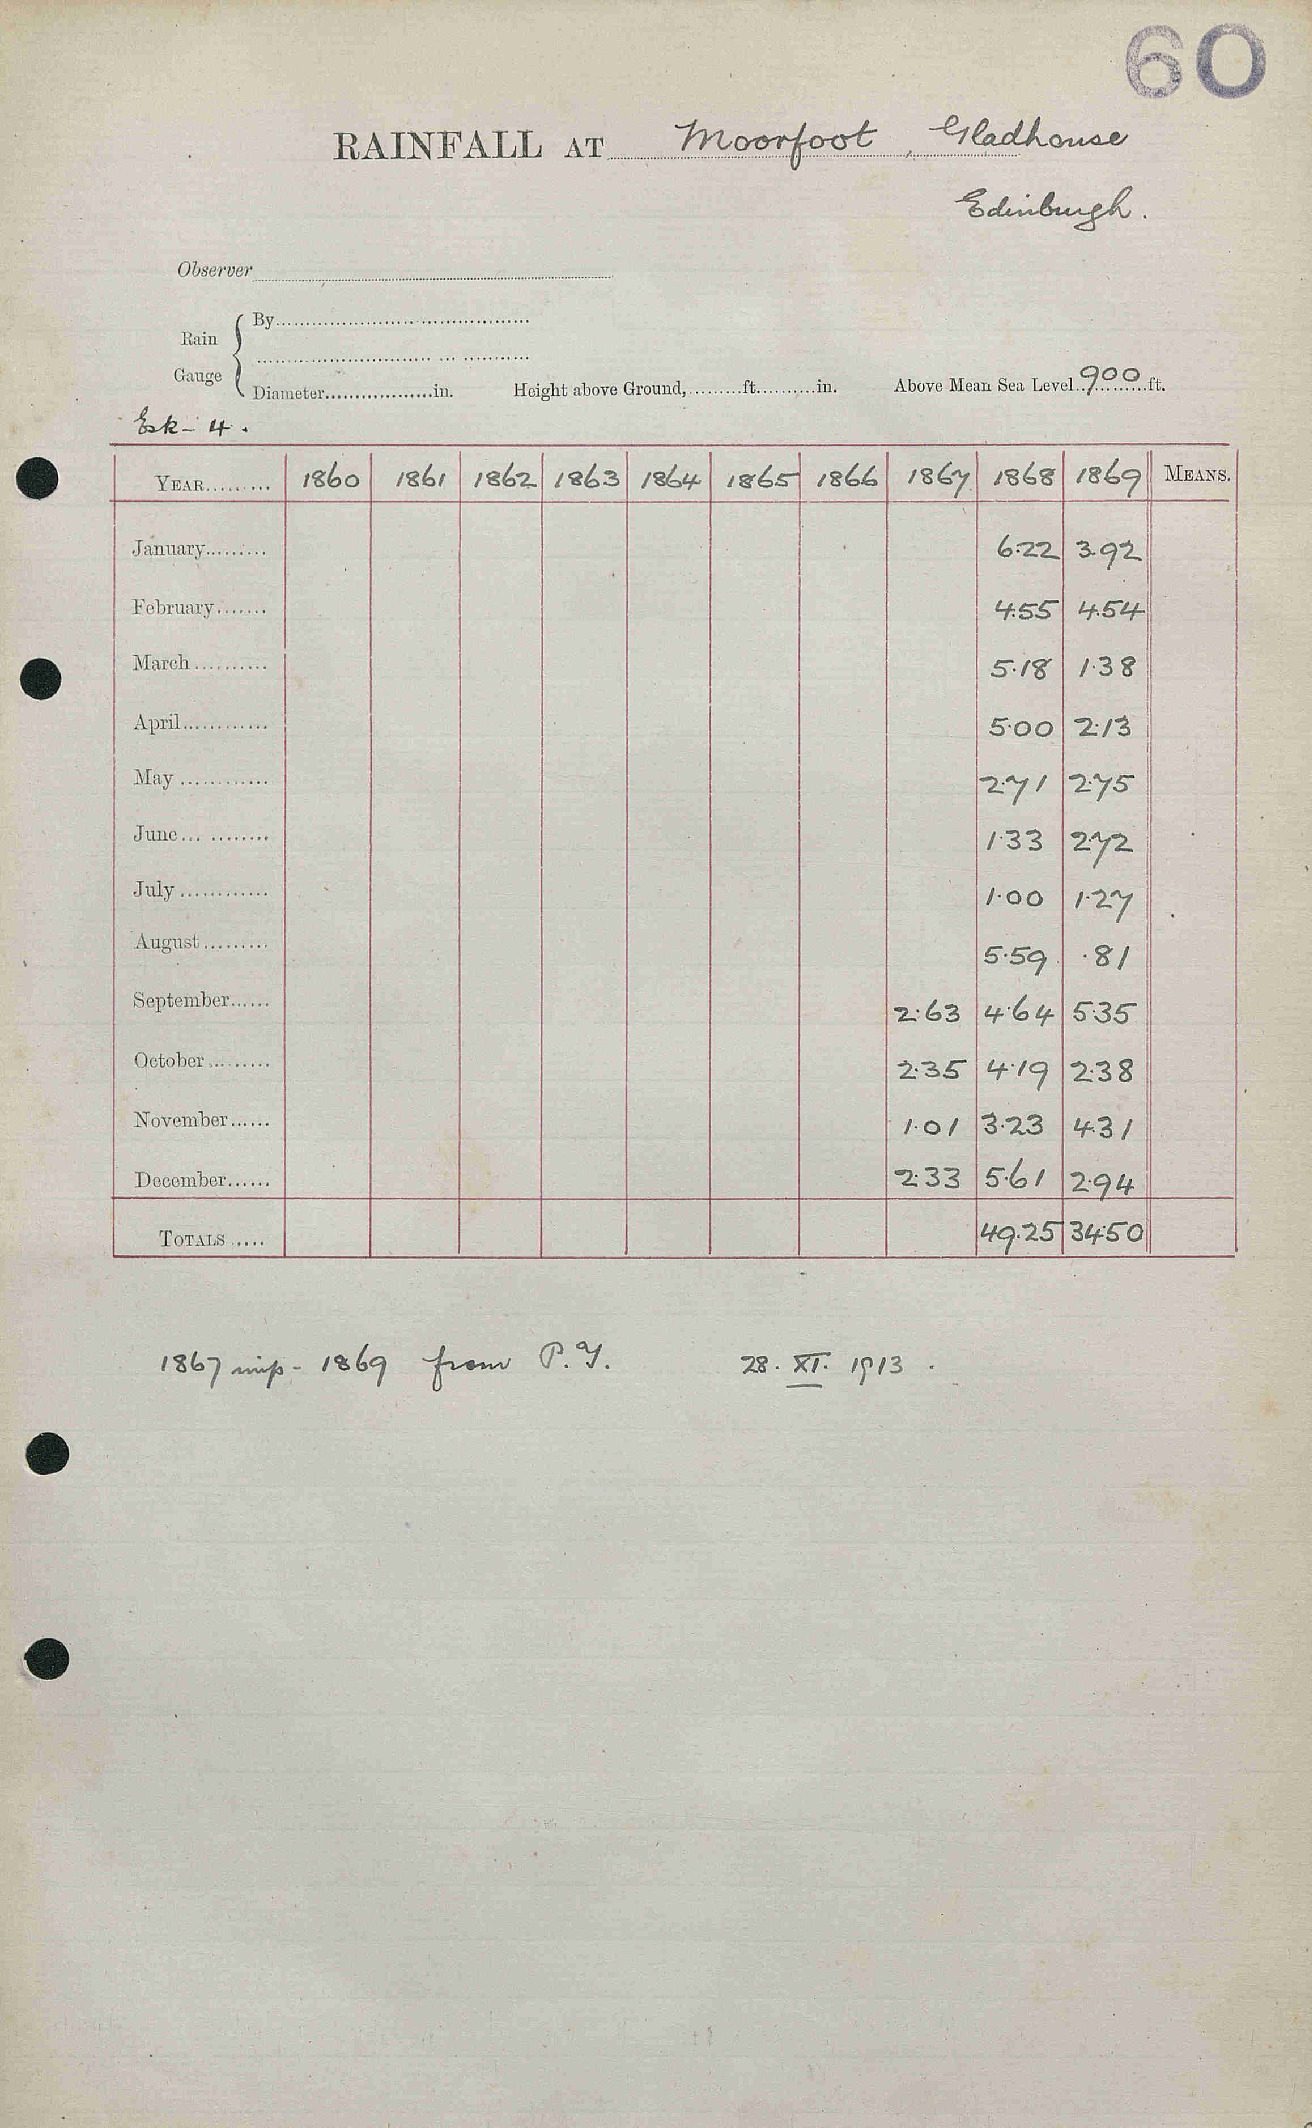 60
RAINFALL AT Moorfoot, Gladhouse
Edinburgh.
Observer
Rain Gauge { By
Diameter in. Height above Ground, ft. in. Above Mean Sea Level 900 ft.
Esk - 4.
YEAR 1860 1861 1862 1863 1864 1865 1866 1867 1868 1869 MEANS.
January 6.22 3.92
February 4.55 4.54
March 5.18 1.38
April 5.00 2.13
May 2.71 2.75
June 1.33 2.72
July 1.00 1.27
August 5.59 .81
September 2.63 4.64 5.35
October 2.35 4.19 2.38
November 1.01 3.23 4.31
December 2.33 5.61 2.94
TOTALS 49.25 34.50
1867 - 1869 from P.Y. 28. XI. 1913.